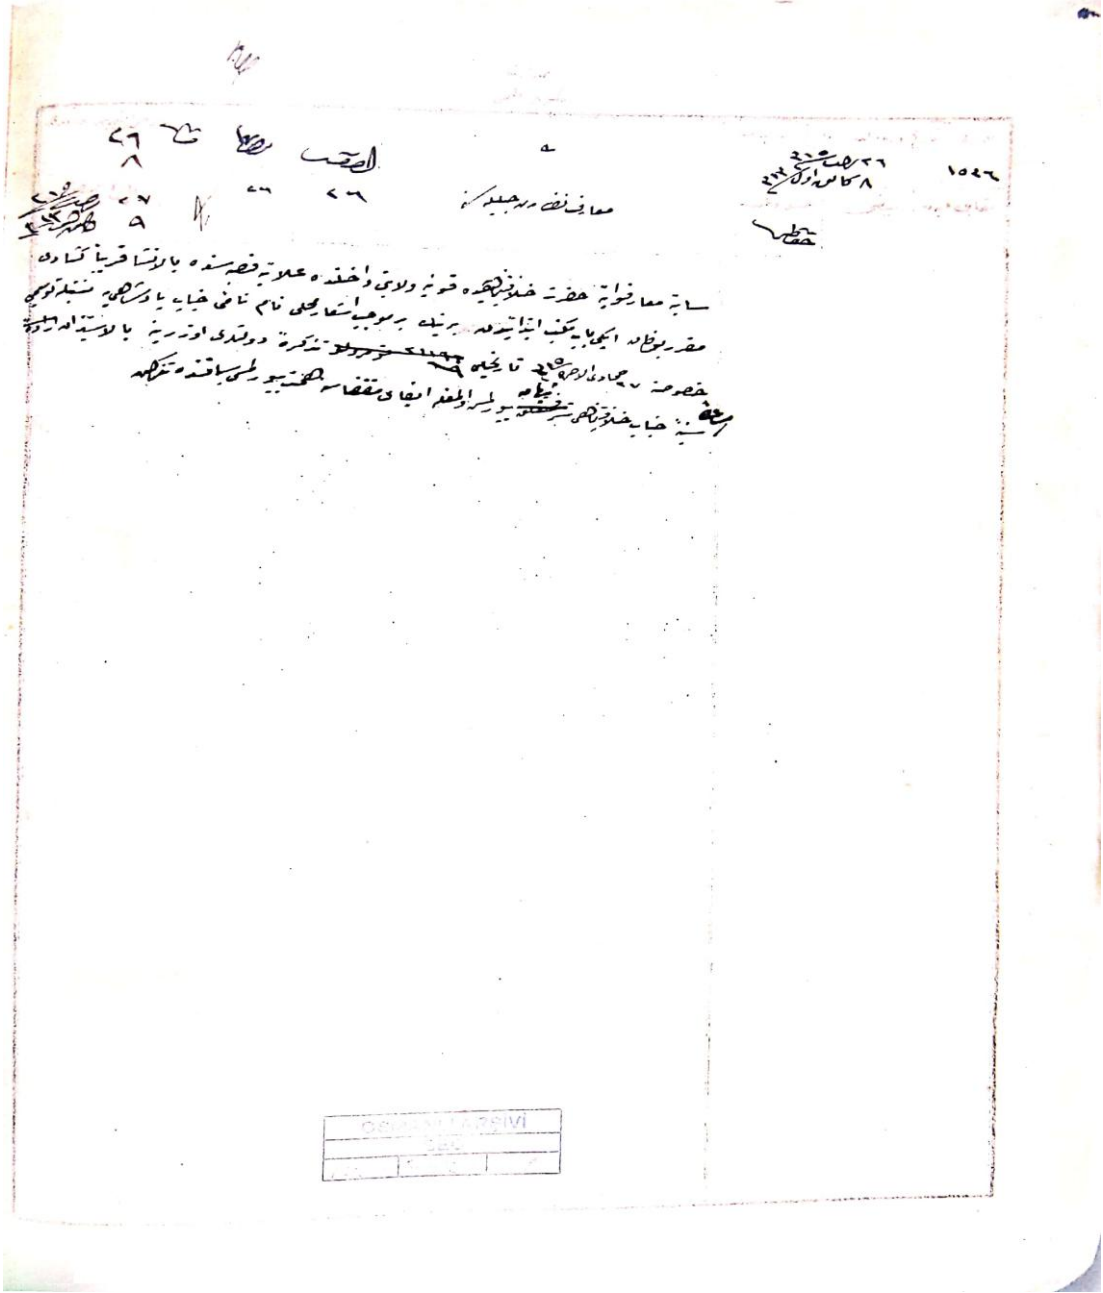 ١٥٤٦
٢٦ رجب ٣١٥
٨ كانون اول ٣١٣
٢٦
٨
٢٦
٢٦
٢٧
٩
معارف نظارت جليله سنه
سايۀ معارفوايۀ حضرت خلافتپناهيده قونيه ولايتى داخلنده علائيه قصبه سنده بالانشا قريباً كشادى
مقرر بولنان ايكى باب مكتب ابتدائيدن برينك بر موجب اشعار محلى نام نامئ جناب پادشاهى يه نسبتله توسيمى
خصوصنه ٢٧ جمادى الاخره ٣١٥ تاريخلى تذكرۀ دولتلرى اوزرينه بالاستيذان اراده
سنيۀ جناب خلافتپناهى شرف بيورلمش اولمغله ايفاى مقتضاسنه همت بيورلمسى سياقنده تذكره
OSMANLI ARŞİVİ
BEO